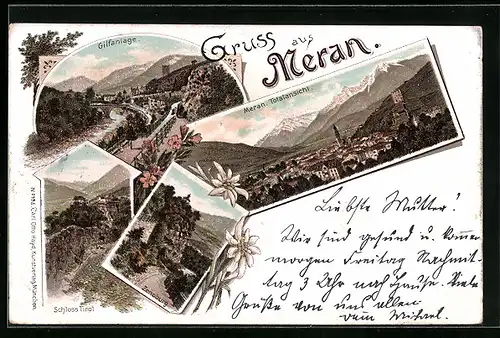 Gruss aus
Meran.
Gilfanlage.
Meran. Totalansicht.
Schloss Tirol
Liebste Mutter!
Wir sind gesund u. kommen
morgen Freitag Nachmit-
tag 3 Uhr nach Hause. Viele
Grüße von uns allen
dein
Carl Otto Hayd, Kunstverlag, München.